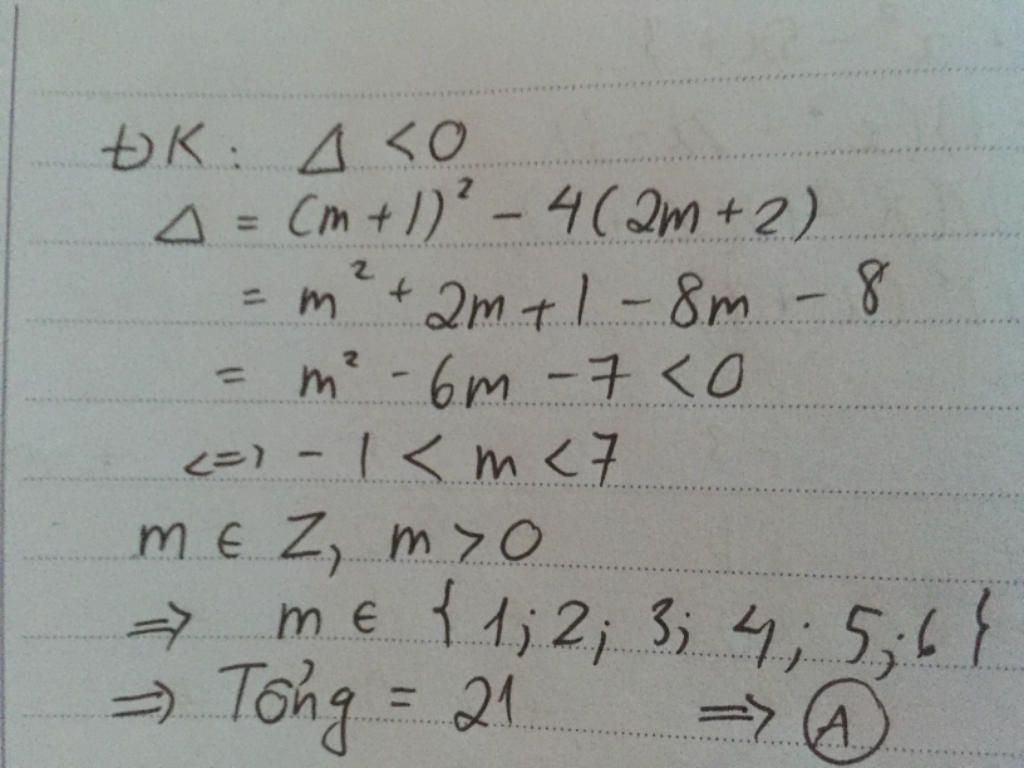 ĐK: Δ < 0
Δ = (m + 1)² - 4(2m + 2)
= m² + 2m + 1 - 8m - 8
= m² - 6m - 7 < 0
<=> -1 < m < 7
m ∈ Z, m > 0
=> m ∈ {1; 2; 3; 4; 5; 6}
=> Tổng = 21 => A